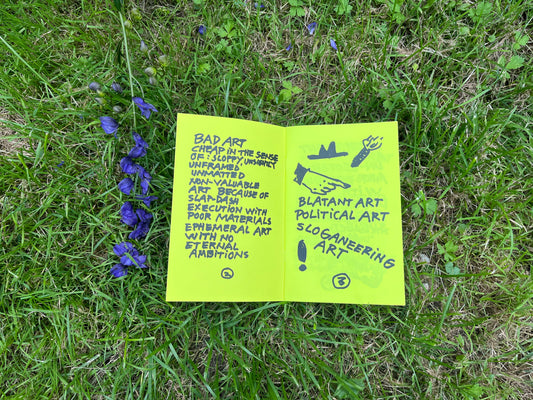 BAD ART
CHEAP IN THE SENSE
OF: SLOPPY, UNSIGNED
UNFRAMED
UNMATTED
NON-VALUABLE
ART BECAUSE OF
SLAP-DASH
EXECUTION WITH
POOR MATERIALS
EPHEMERAL ART
WITH NO
ETERNAL
AMBITIONS
2
BLATANT ART
POLITICAL ART
SLOGANEERING
ART
!
3